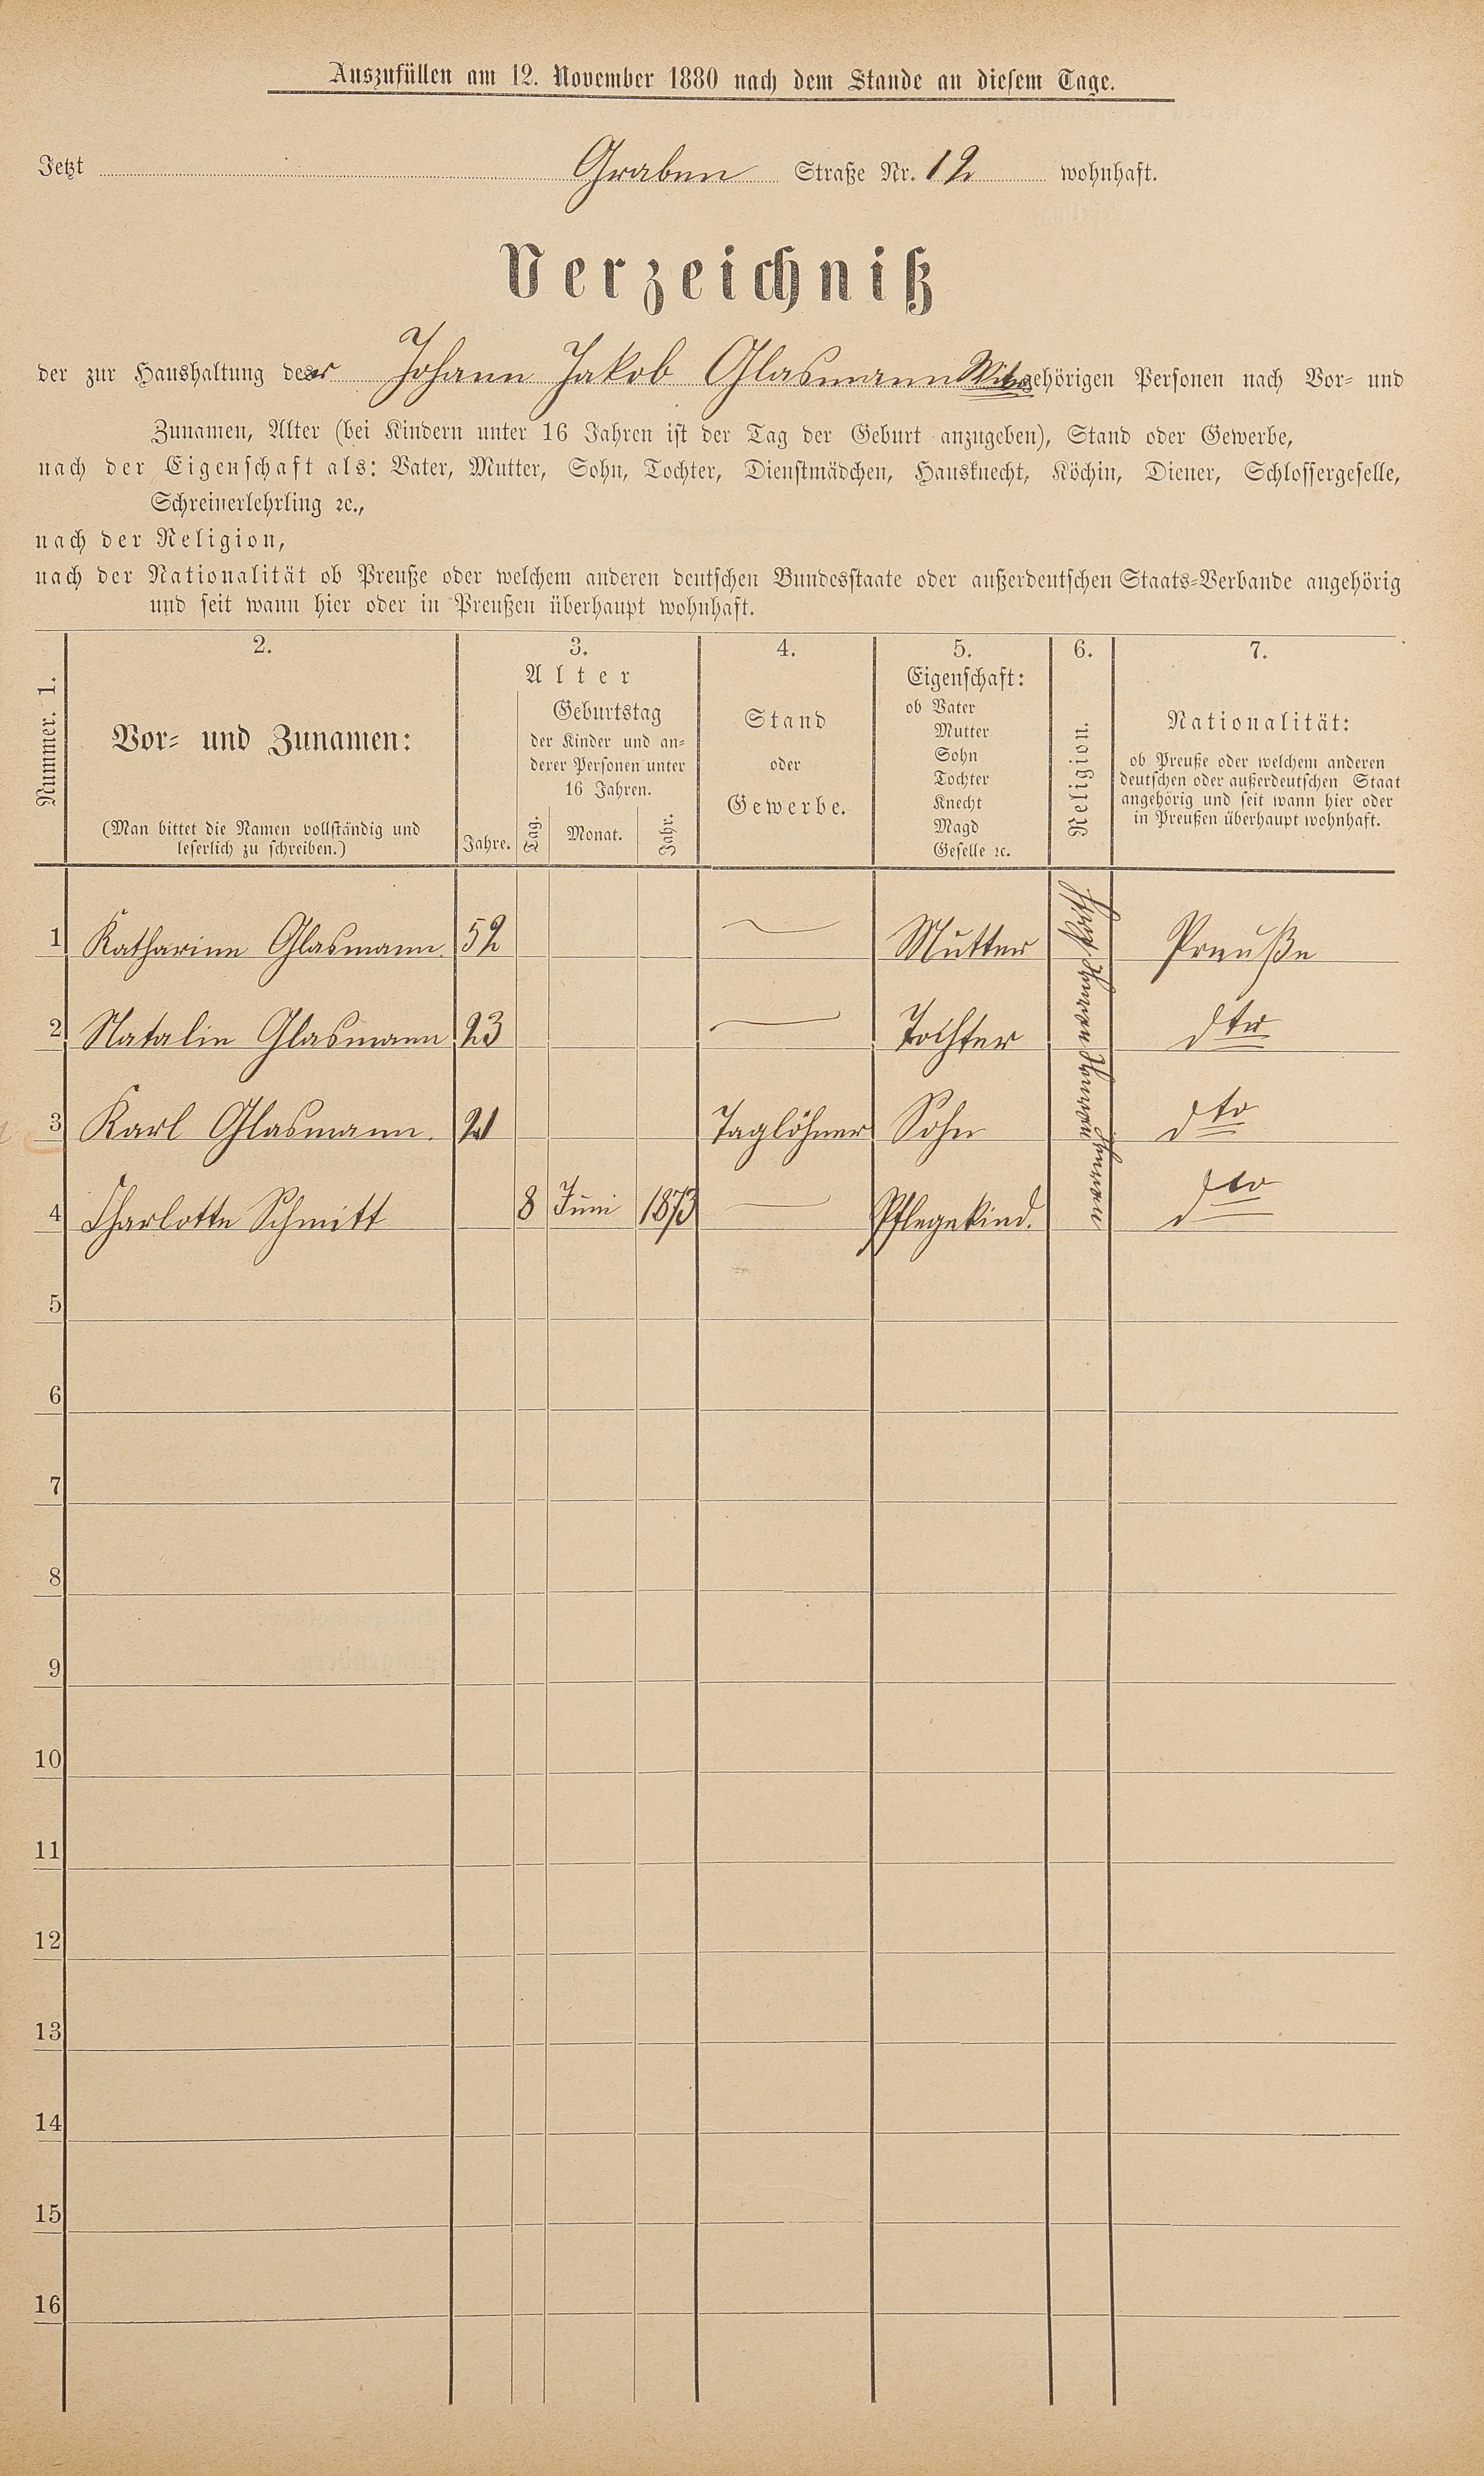 Auszufüllen am 12. November 1880 nach dem Stande an diesem Tage.
Jetzt Graben Straße Nr. 12 wohnhaft.
Verzeichniß
der zur Haushaltung der Johann Jakob Glasmann Wtw. gehörigen Personen nach Vor- und
Zunamen, Alter (bei Kindern unter 16 Jahren ist der Tag der Geburt anzugeben), Stand oder Gewerbe,
nach der Eigenschaft als: Vater, Mutter, Sohn, Tochter, Dienstmädchen, Hausknecht, Köchin, Diener, Schlossergeselle,
Schreinerlehrling ꝛc.,
nach der Religion,
nach der Nationalität ob Preuße oder welchem anderen deutschen Bundesstaate oder außerdeutschen Staats-Verbande angehörig
und seit wann hier oder in Preußen überhaupt wohnhaft.
Nummer. 1.
2.
Vor- und Zunamen:
(Man bittet die Namen vollständig und
leserlich zu schreiben.)
3.
Alter
Jahre.
Geburtstag
der Kinder und an-
derer Personen unter
16 Jahren.
Tag. Monat. Jahr.
4.
Stand
oder
Gewerbe.
5.
Eigenschaft:
ob Vater
Mutter
Sohn
Tochter
Knecht
Magd
Geselle ꝛc.
6.
Religion.
7.
Nationalität:
ob Preuße oder welchem anderen
deutschen oder außerdeutschen Staat
angehörig und seit wann hier oder
in Preußen überhaupt wohnhaft.
1 Katharine Glasmann. 52 — Mutter kath Preuße
2 Natalie Glasmann 23 — Tochter dto
3 Karl Glasmann. 21 Taglöhner Sohn evang dto
4 Charlotte Schmitt 8 Juni 1873 — Pflegekind. dto
5
6
7
8
9
10
11
12
13
14
15
16